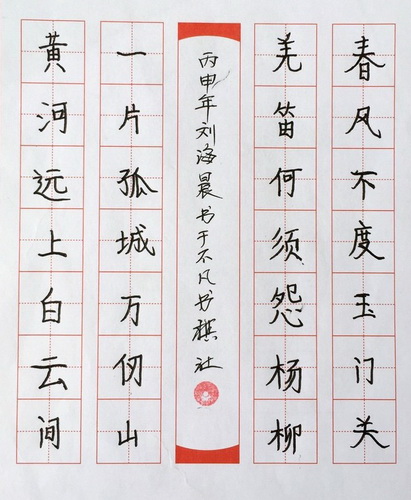 黄河远上白云间
一片孤城万仞山
丙申年刘海晨书于不凡书棋社
羌笛何须怨杨柳
春风不度玉门关